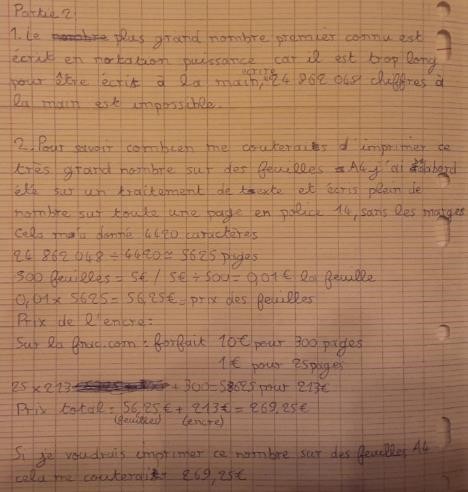 Partie 2
1. Le plus grand nombre premier connu est
écrit en notation puissance car il est trop long
pour être écrit à la main, écrire 24 862 048 chiffres à
la main est impossible.
2. Pour savoir combien me couterait d'imprimer ce
très grand nombre sur des feuilles A4 j'ai d'abord
été sur un traitement de texte et écris plein de
nombre sur toute une page en police 14, sans les marges
Cela m'a donné 4420 caractères
24 862 048 ÷ 4420 = 5625 pages
500 feuilles = 5€ / 5€ ÷ 500 = 0,01€ la feuille
0,01 x 5625 = 56,25€ = prix des feuilles
Prix de l'encre:
Sur la fnac.com : forfait 10€ pour 300 pages
1€ pour 25 pages
25 x 213 + 300 = 5625 pour 213€
Prix total = 56,25€ + 213€ = 269,25€
(feuilles) (encre)
Si je voudrais imprimer ce nombre sur des feuilles A4
cela me couterait 269,25€